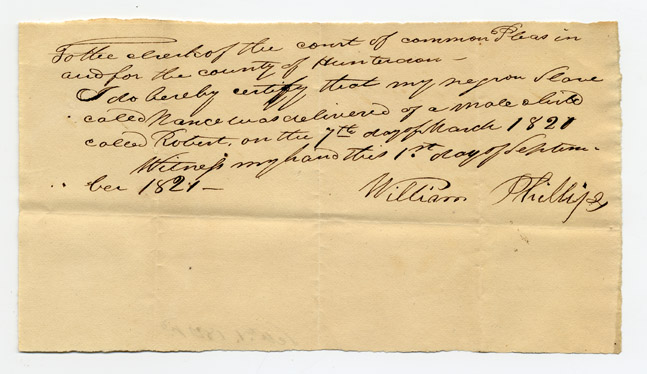 To the clerk of the court of common Pleas in
and for the county of Hunterdon —
I do hereby certify that my negron Slave
called Nance was delivered of a male child
called Robert, on the 7th day of March 1821
Witness my hand this 1st day of Septem-
ber 1821 —
William Phillips